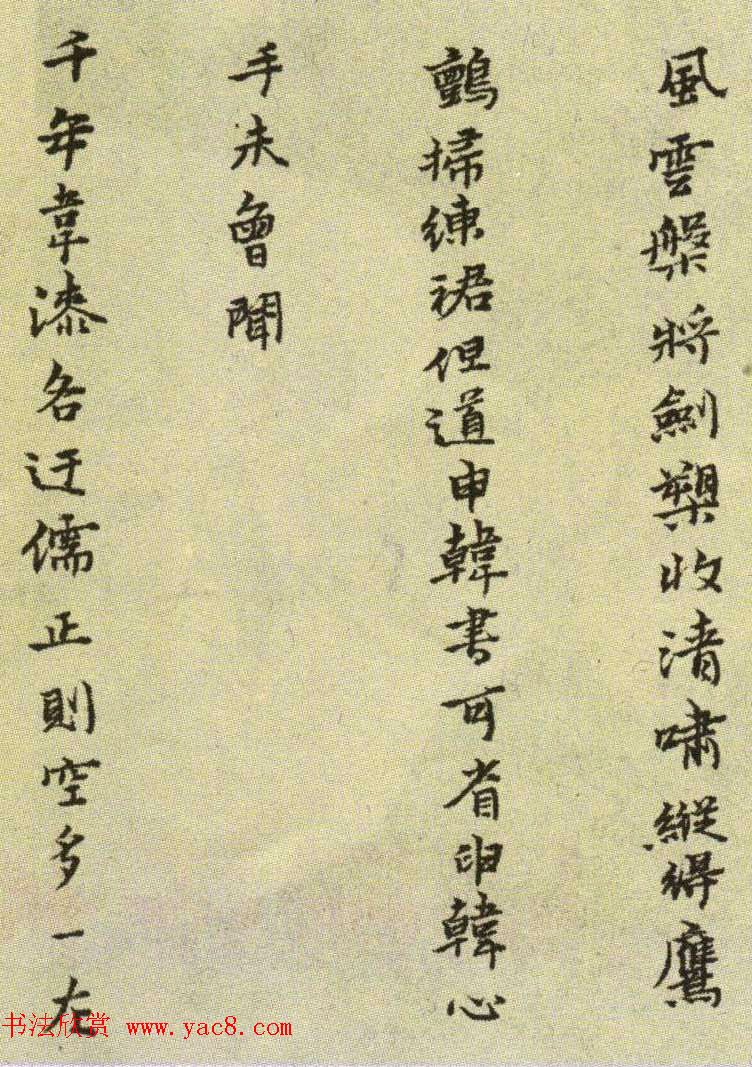 風雲槃將劍槊收清嘯縱得鷹
鸇掃練裙但道申韓書可省申韓心
手未曾聞
千年韋漆各迂儒正則空多一左
书法欣赏 www.yac8.com